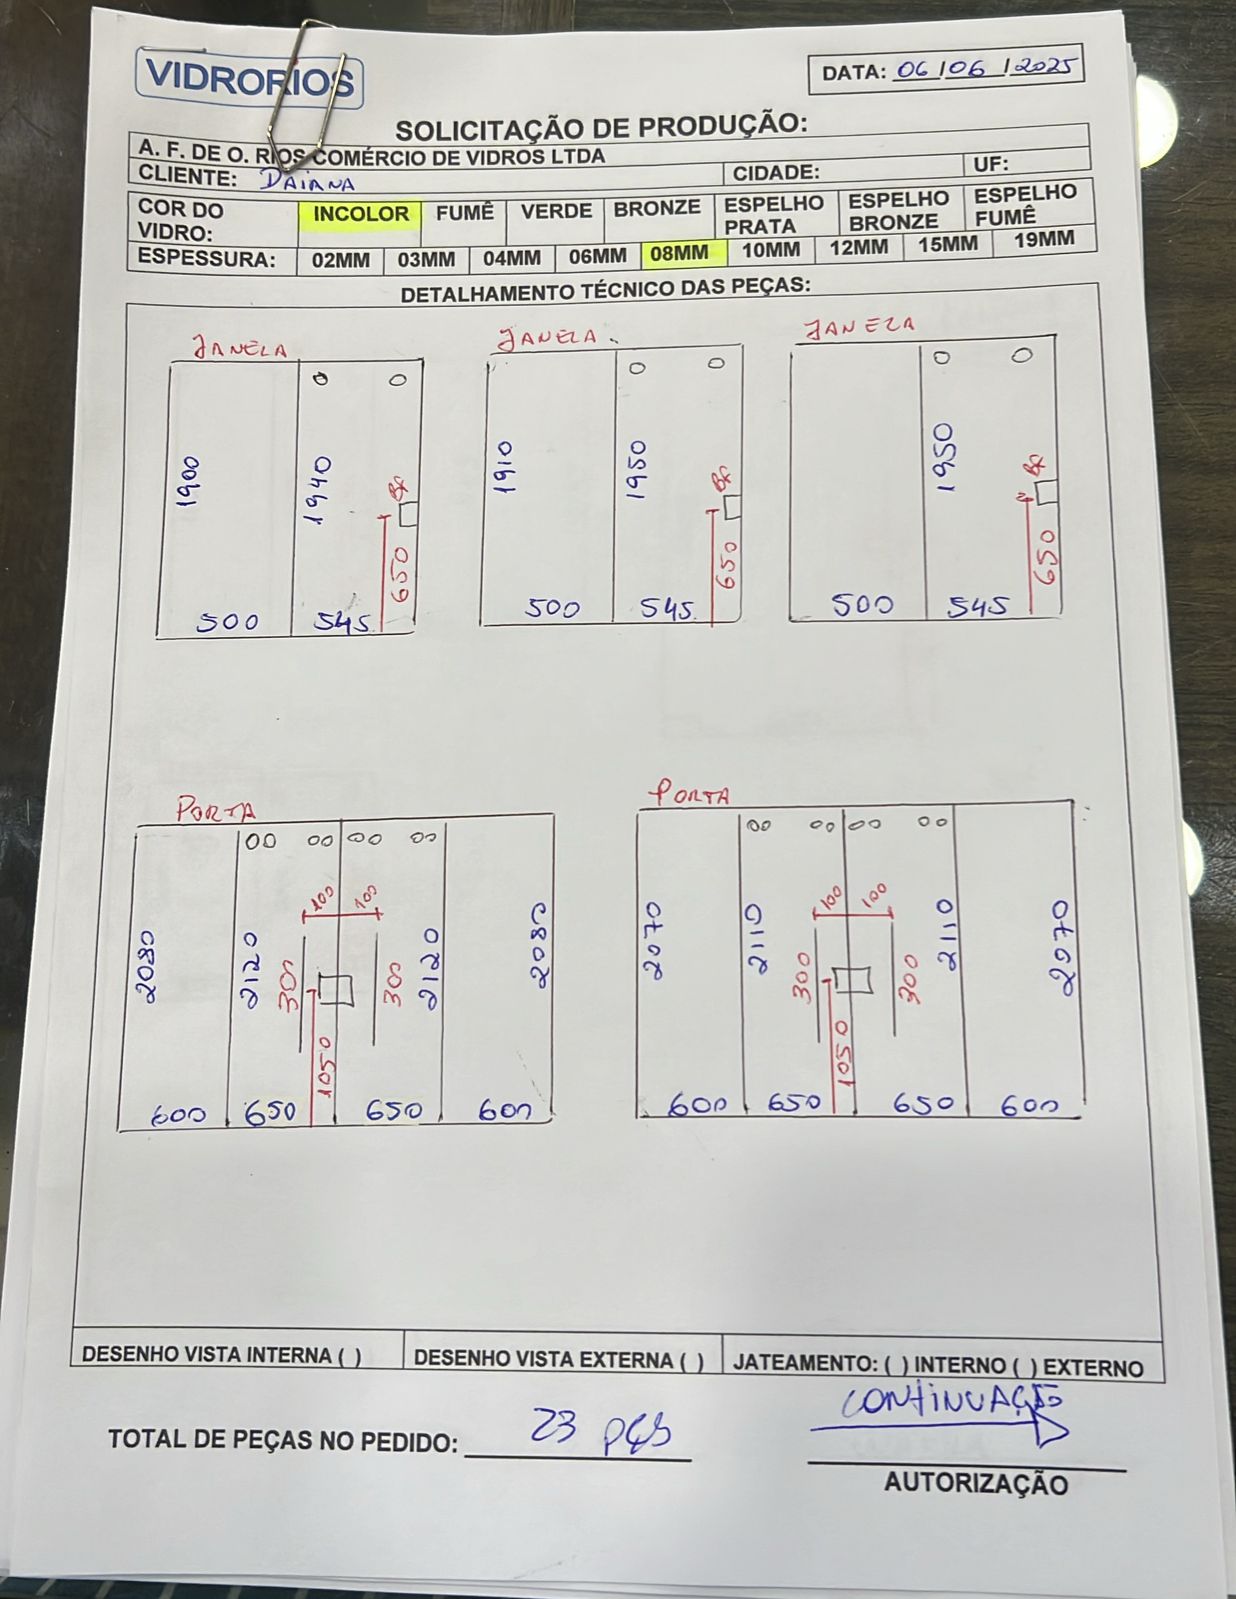 VIDRORIOS
DATA: 06/06/2025
SOLICITAÇÃO DE PRODUÇÃO:
A. F. DE O. RIOS COMÉRCIO DE VIDROS LTDA
CLIENTE: DAIANA CIDADE: UF:
COR DO VIDRO: INCOLOR FUMÊ VERDE BRONZE ESPELHO PRATA ESPELHO BRONZE ESPELHO FUMÊ
ESPESSURA: 02MM 03MM 04MM 06MM 08MM 10MM 12MM 15MM 19MM
DETALHAMENTO TÉCNICO DAS PEÇAS:
JANELA
1900 1940
650
500 545
JANELA
1910 1950
650
500 545
JANELA
1950
650
500 545
PORTA
100 100
2080 2120 300 300 2120 2080
1050
600 650 650 600
PORTA
100 100
2070 2110 300 300 2110 2070
1050
600 650 650 600
DESENHO VISTA INTERNA ( ) DESENHO VISTA EXTERNA ( ) JATEAMENTO: ( ) INTERNO ( ) EXTERNO
CONTINUAÇÃO
TOTAL DE PEÇAS NO PEDIDO: 23 PÇS
AUTORIZAÇÃO